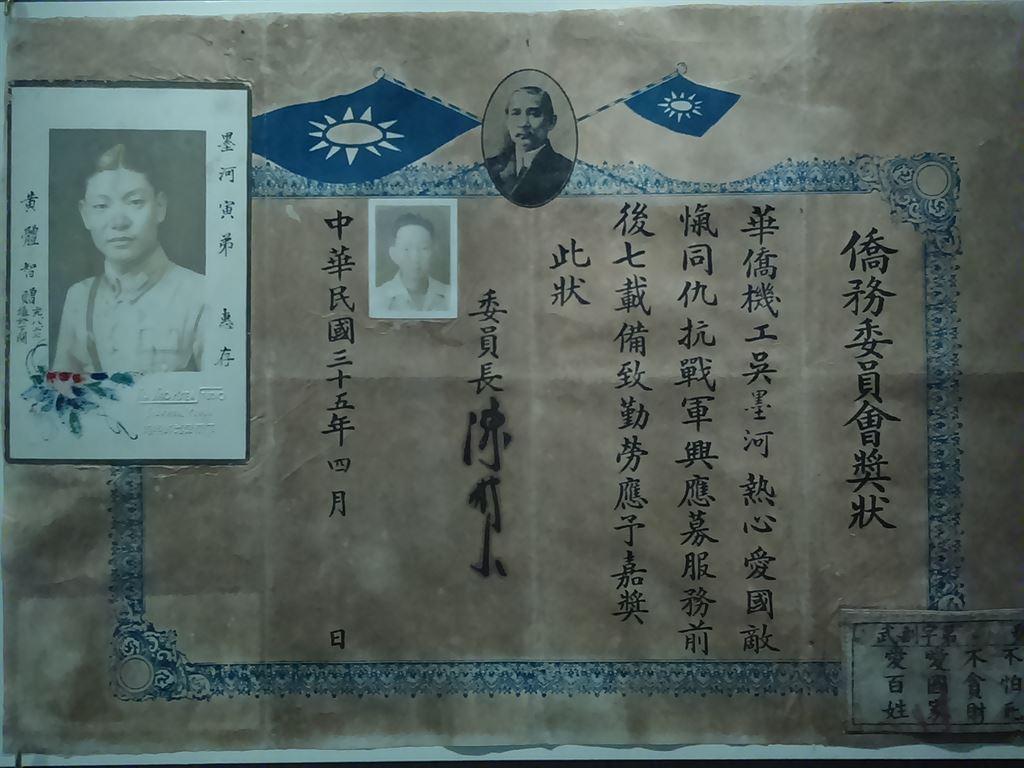 僑務委員會獎狀
華僑機工吳墨河熱心愛國敵
愾同仇抗戰軍興應募服務前
後七載備致勤勞應予嘉獎
此狀
委員長陳
中華民國三十五年四月 日
墨河寅弟 惠存
黃體智贈
不怕死
不貪財
愛國家
愛百姓